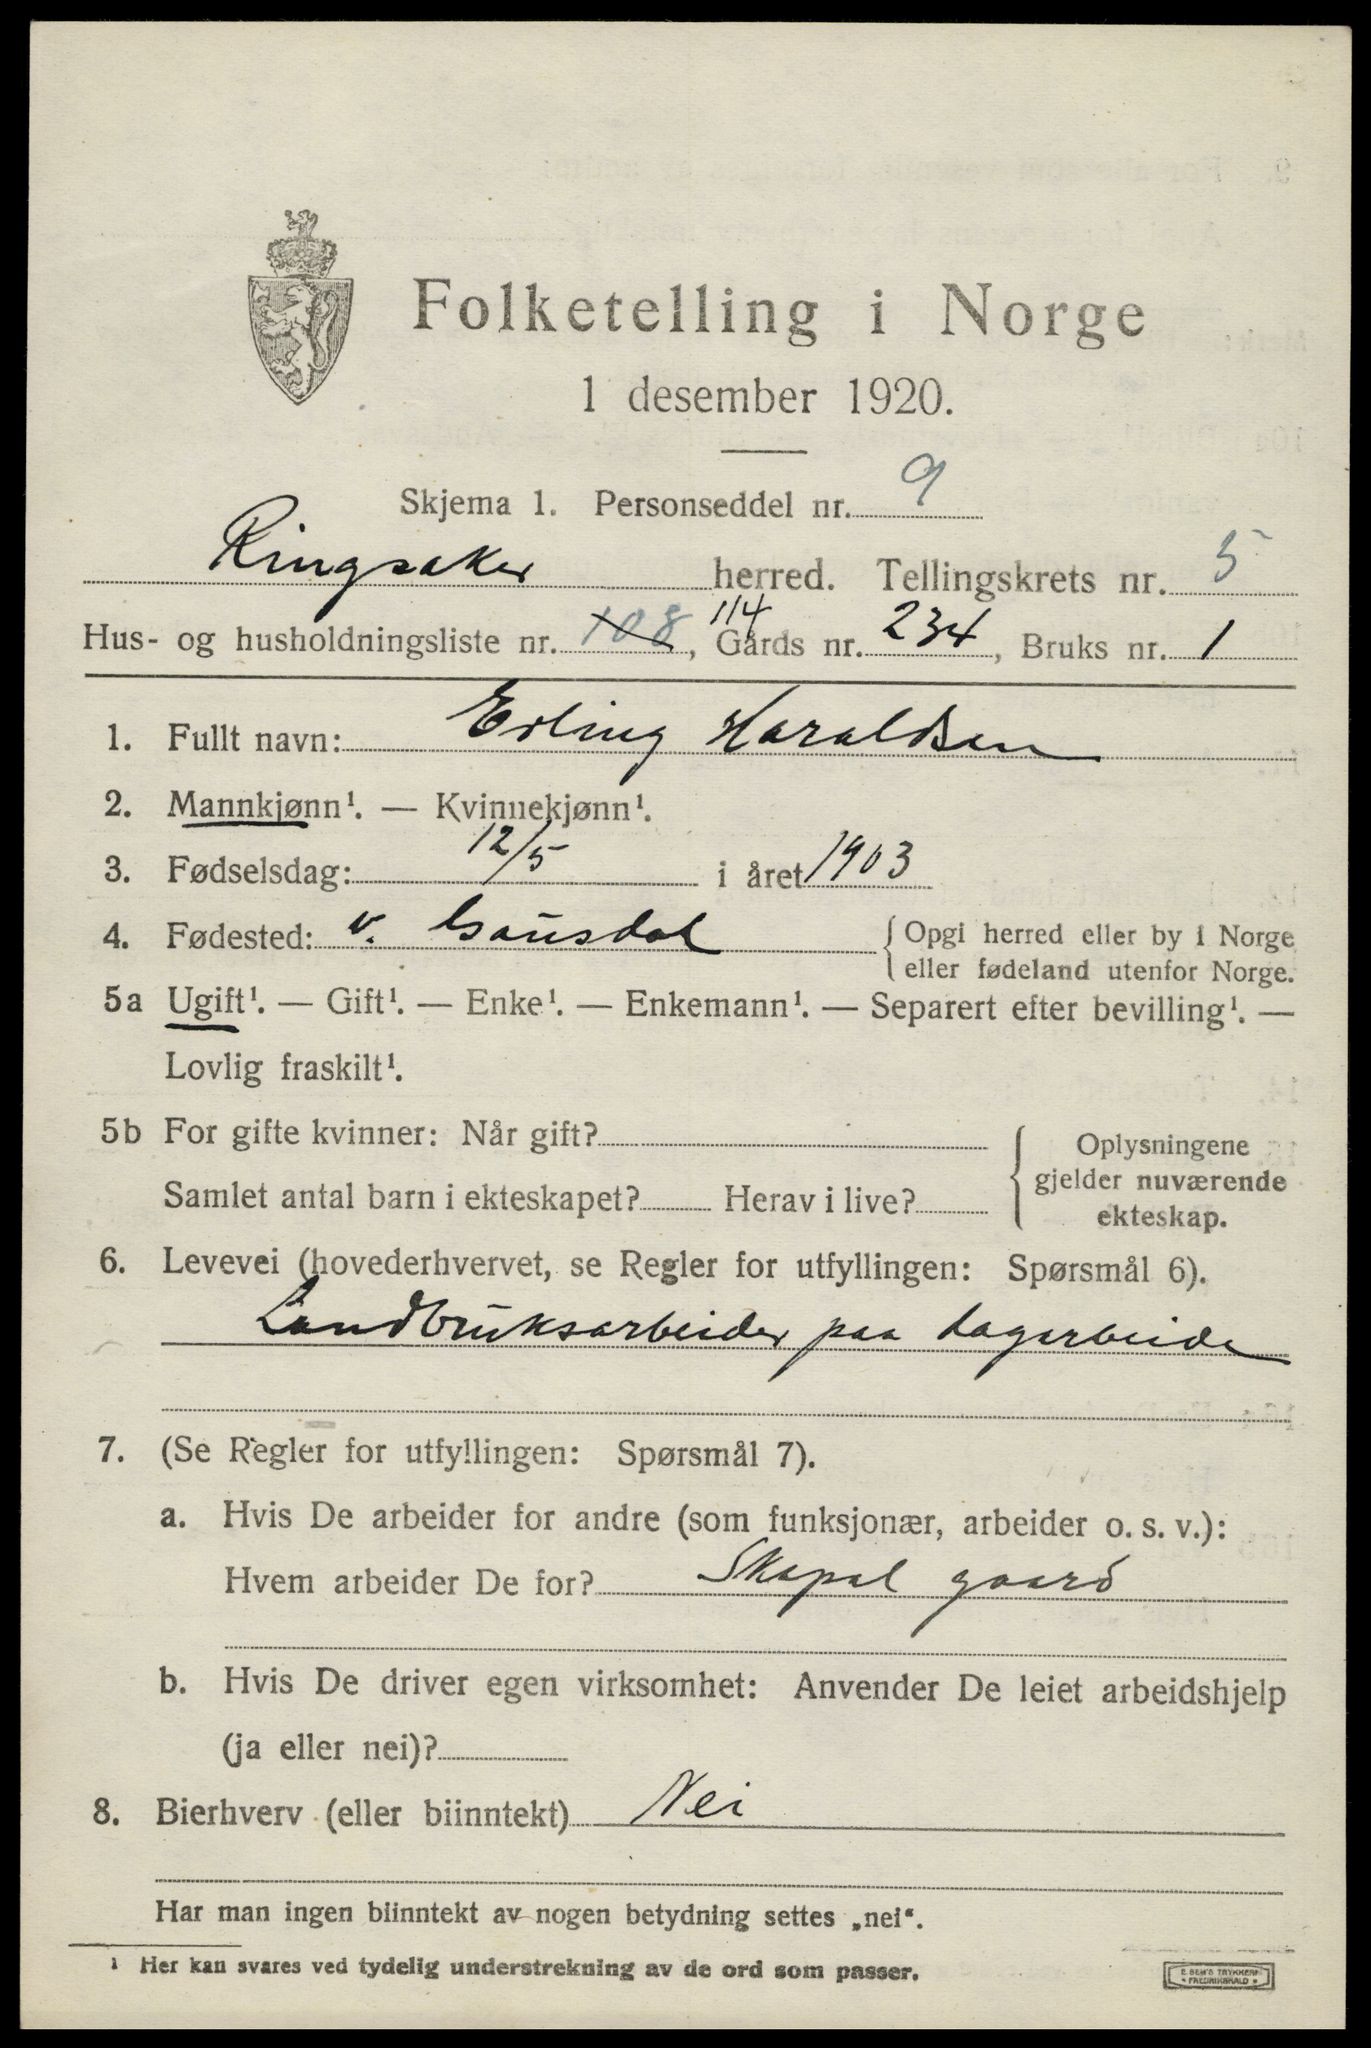 Folketelling i Norge
1 desember 1920.
Skjema 1. Personseddel nr. 9
Ringsaker herred. Tellingskrets nr. 5
Hus- og husholdningsliste nr. 108 114, Gårds nr. 234, Bruks nr. 1
1. Fullt navn: Erling Haraldsen
2. Mannkjønn¹. — Kvinnekjønn¹.
3. Fødselsdag: 12/5 i året 1903
4. Fødested: v. Gausdal { Opgi herred eller by i Norge
eller fødeland utenfor Norge.
5a Ugift¹. — Gift¹. — Enke¹. — Enkemann¹. — Separert efter bevilling¹. —
Lovlig fraskilt¹.
5b For gifte kvinner: Når gift?
Samlet antal barn i ekteskapet? Herav i live?
{ Oplysningene
gjelder nuværende
ekteskap.
6. Levevei (hovederhvervet, se Regler for utfyllingen: Spørsmål 6).
Landbruksarbeider paa dagarbeide
7. (Se Regler for utfyllingen: Spørsmål 7).
a. Hvis De arbeider for andre (som funksjonær, arbeider o. s. v.):
Hvem arbeider De for? Skapal gaard
b. Hvis De driver egen virksomhet: Anvender De leiet arbeidshjelp
(ja eller nei)?
8. Bierhverv (eller biinntekt) Nei
Har man ingen biinntekt av nogen betydning settes „nei“.
¹ Her kan svares ved tydelig understrekning av de ord som passer.
E. SEM'S TRYKKERI
FREDRIKSHALD